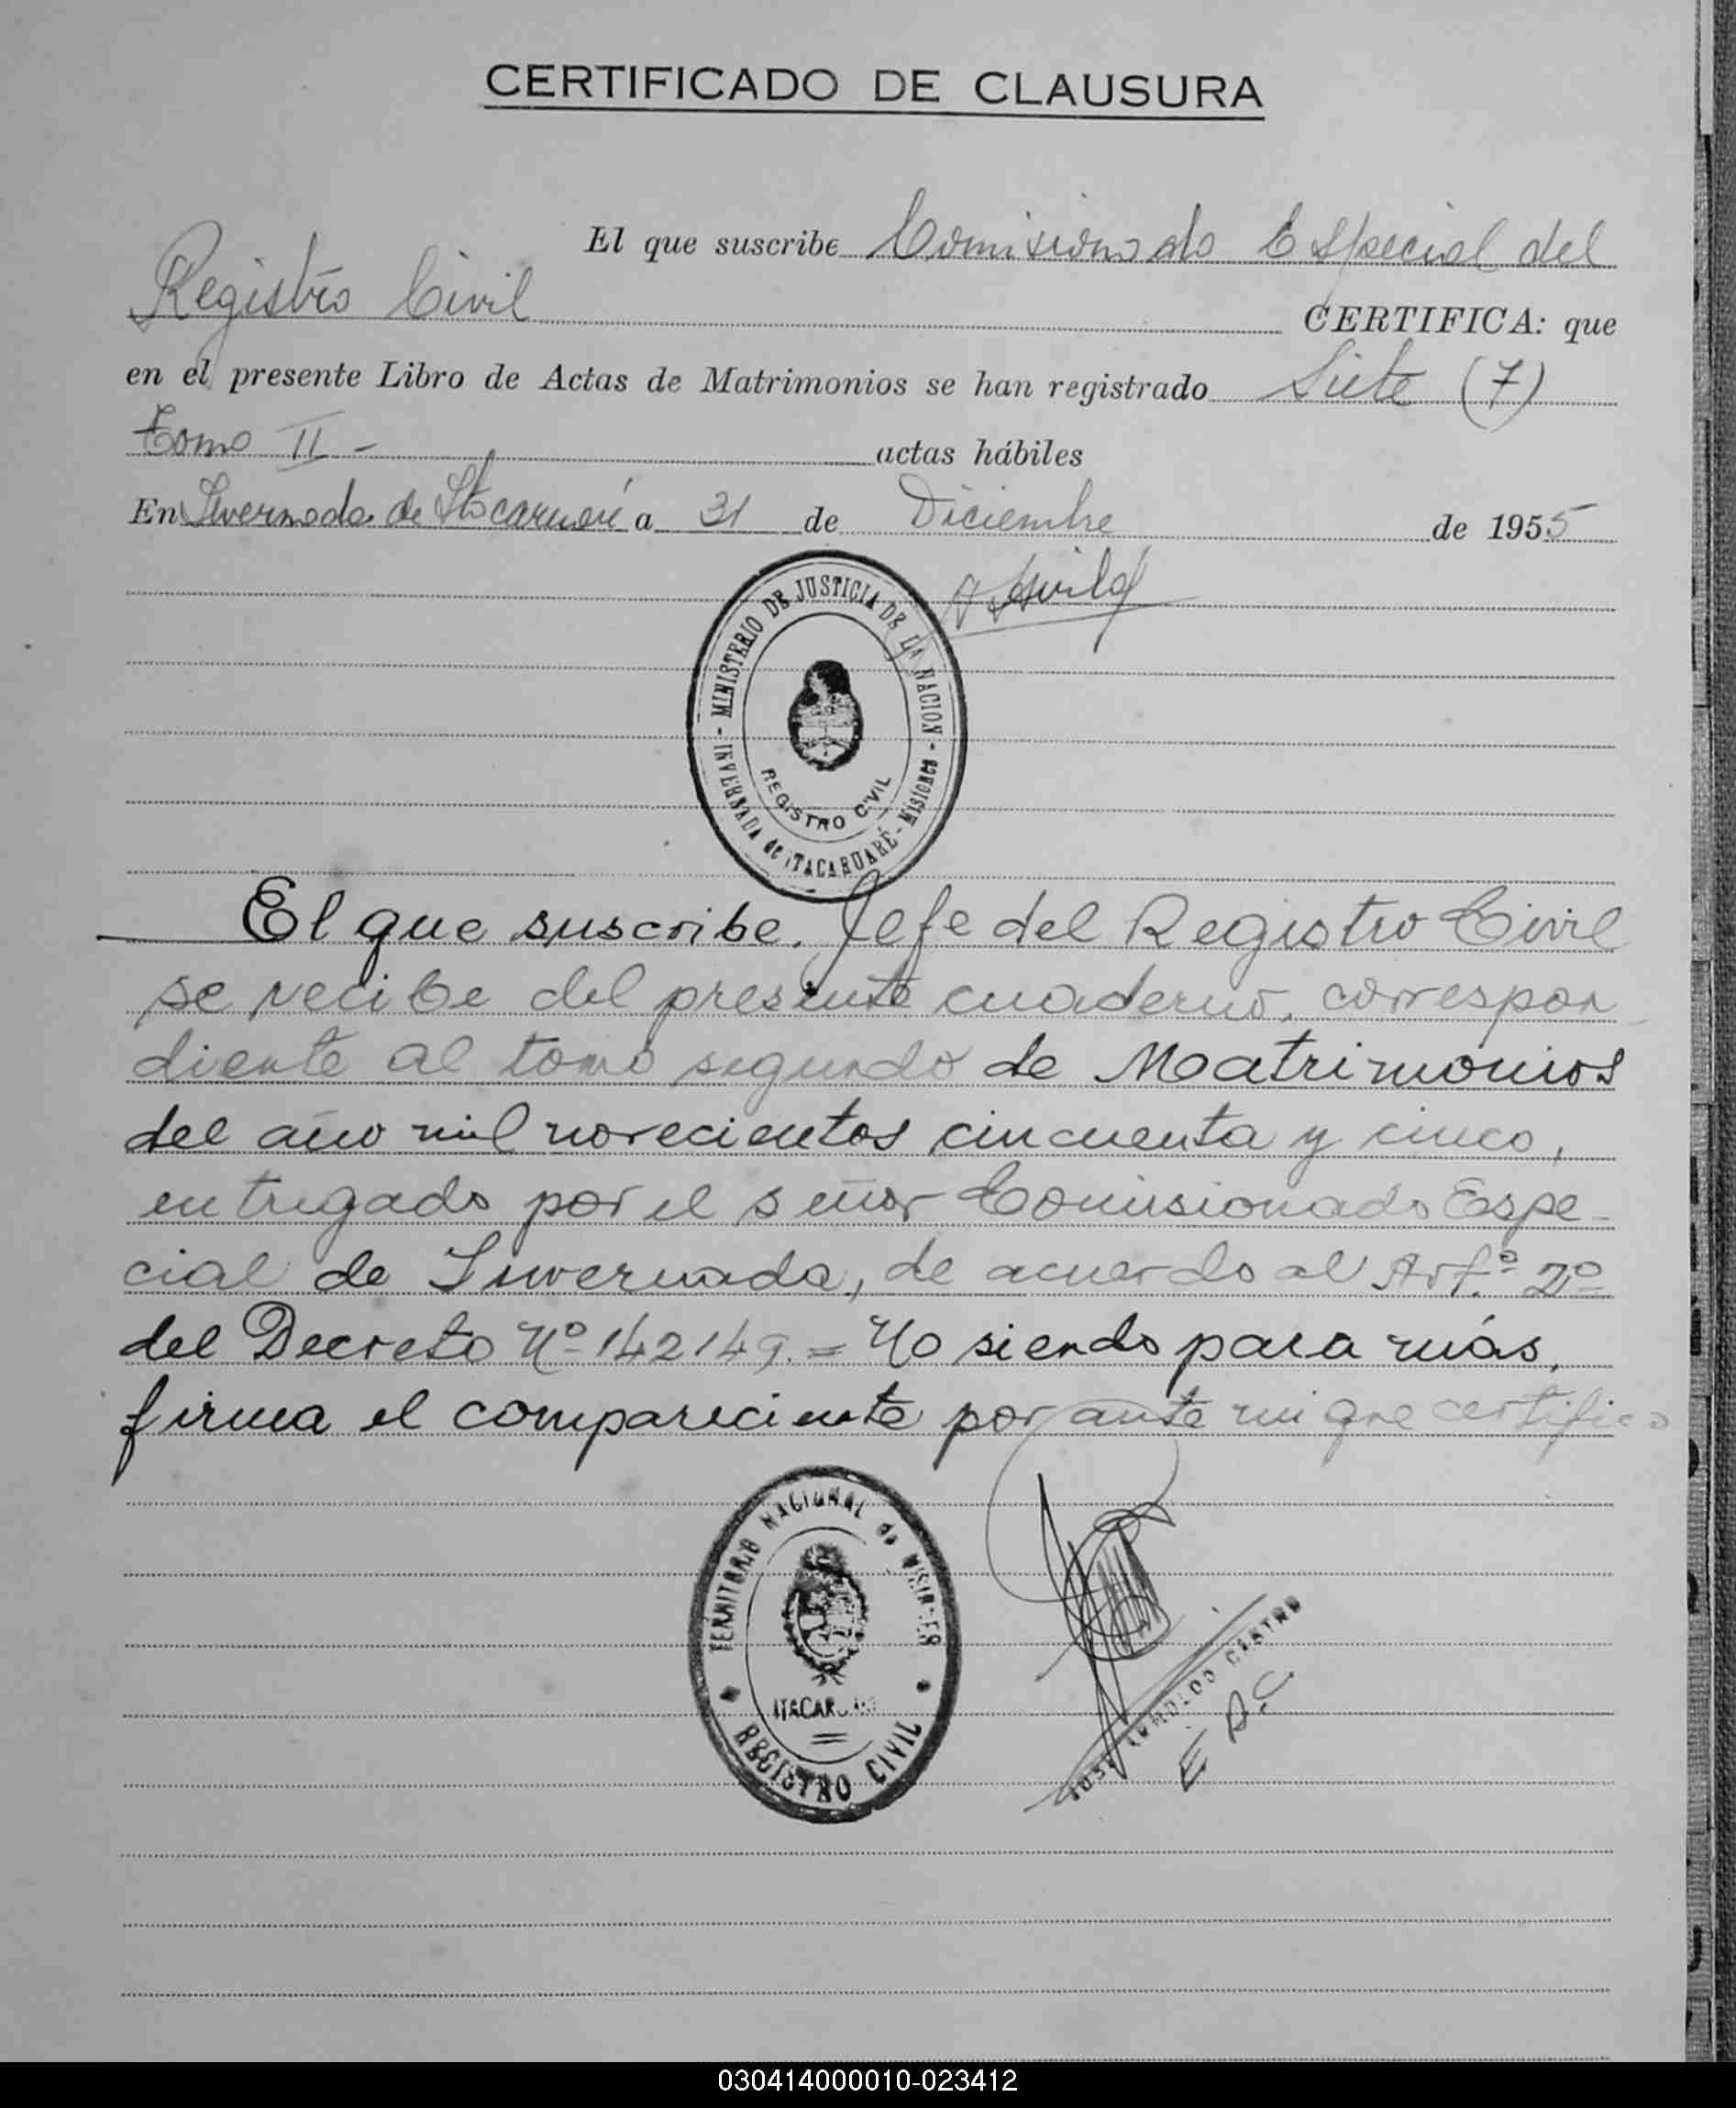 CERTIFICADO DE CLAUSURA
El que suscribe Comisionado Especial del
Registro Civil CERTIFICA: que
en el presente Libro de Actas de Matrimonios se han registrado Siete (7)
Tomo II - actas hábiles
En Invernada de Itacaruaré a 31 de Diciembre de 1955
MINISTERIO DE JUSTICIA DE LA NACION
REGISTRO CIVIL
INVERNADA de ITACARUARÉ - MISIONES
El que suscribe, Jefe del Registro Civil
se recibe del presente cuaderno, correspon
diente al tomo segundo de Matrimonios
del año mil novecientos cincuenta y cinco,
entregado por el señor Comisionado Espe-
cial de Invernada, de acuerdo al Art.º 2º
del Decreto Nº 142149.= No siendo para más,
firma el compareciente por ante mi que certifico
TERRITORIO NACIONAL de MISIONES
REGISTRO CIVIL
CASTRO
030414000010-023412